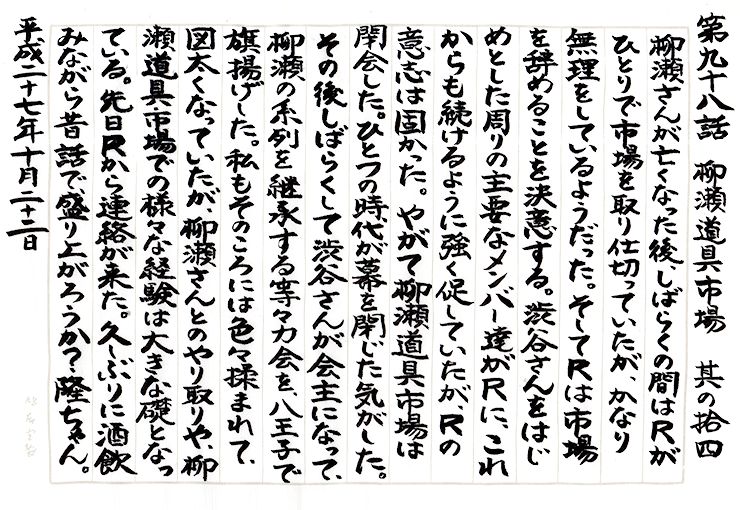 第九十八話　柳瀬道具市場　其の拾四
柳瀬さんが亡くなった後、しばらくの間はRが
ひとりで市場を取り仕切っていたが、かなり
無理をしているようだった。そしてRは市場
を辞めることを決意する。渋谷さんをはじ
めとした周りの主要なメンバー達がRに、これ
からも続けるように強く促していたが、Rの
意志は固かった。やがて柳瀬道具市場は
閉会した。ひとつの時代が幕を閉じた気がした。
その後しばらくして渋谷さんが会主になって、
柳瀬の系列を継承する等々力会を八王子で
旗揚げした。私もそのころには色々揉まれて、
図太くなっていたが、柳瀬さんとのやり取りや、柳
瀬道具市場での様々な経験は大きな礎となっ
ている。先日Rから連絡が来た。久しぶりに酒飲
みながら昔話で盛り上がろうか?隆ちゃん。
平成二十七年十月二十二日